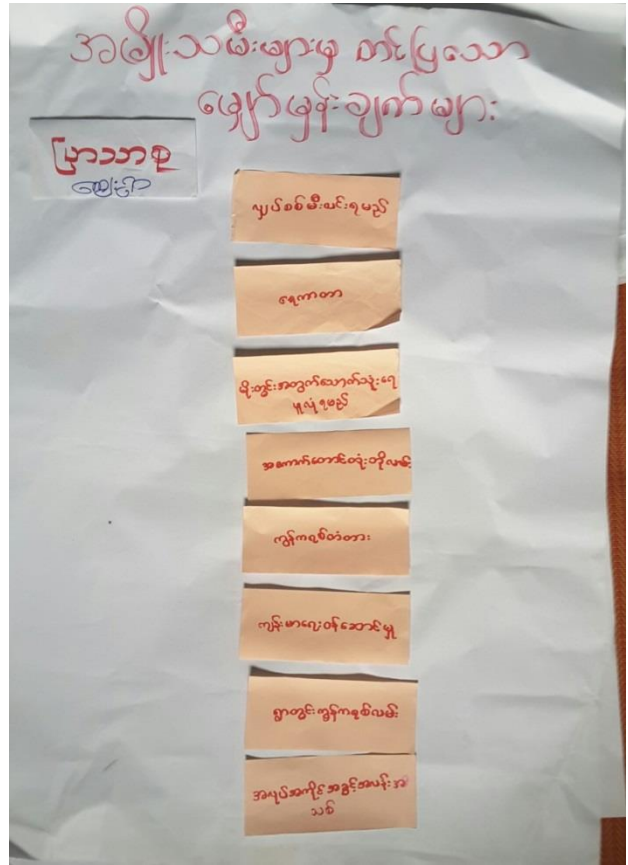 အမျိုးသမီးများမှ တင်ပြသော
မျှော်မှန်းချက်များ
ပြာသာစု
ကျေးရွာ
လျှပ်စစ်မီးလင်းရမည်
ရေကာတာ
မိုးတွင်းအတွက်သောက်သုံးရေ
ဖူလုံရမည်
အကောက်တောင်တုံးဘိုလမ်း
ကွန်ကရစ်တံတား
ကျန်းမာရေးဝန်ဆောင်မှု
ရွာတွင်းကွန်ကရစ်လမ်း
အလုပ်အကိုင်အခွင့်အလန်းအ
သစ်